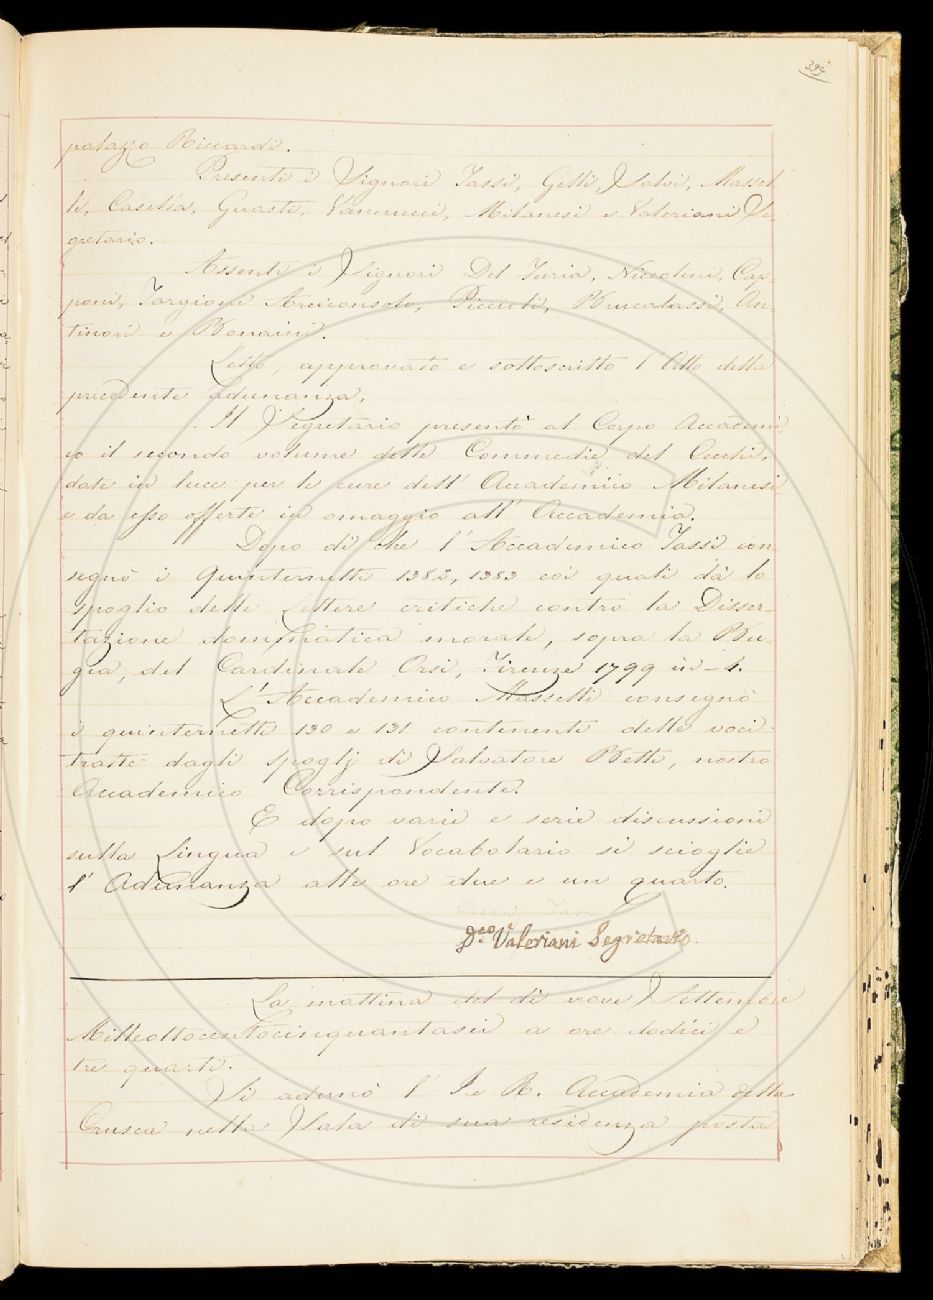 399
palazzo Riccardi.
Presenti i Signori Tassi, Gelli, Salvi, Massel
li, Casella, Guasti, Vannucci, Milanesi e Valeriani Se
gretario.
Assenti i Signori Del Furia, Niccolini, Cap-
poni, Targioni Arciconsolo, Piccioli, Brucalassi, An-
tinori e Bonaini.
Letto, approvato e sottoscritto l'Atto della
precedente adunanza,
Il Segretario presentò al Corpo Accademi
co il secondo volume delle Commedie del Cecchi,
date in luce per le cure dell'Accademico Milanesi,
e da esso offerte in omaggio all'Accademia.
Dopo di che l'Accademico Tassi con
segnò i Quinternetti 1382, 1383 coi quali dà lo
spoglio delle Lettere critiche contro la Disser-
tazione dommatica morale, sopra la Bu-
gia, del Cardinale Orsi, Firenze 1799 in-4.
L'Accademico Masselli consegnò
i quinternetti 130 e 131 contenenti delle voci
tratte dagli spoglj di Salvatore Betti, nostro
Accademico Corrispondente.
E dopo varie e serie discussioni
sulla Lingua e sul Vocabolario si scioglie
l'Adunanza alle ore due e un quarto.
Valeriani Segretario
La mattina del dì nove Settembre
Milleottocentocinquantasei a ore dodici e
tre quarti.
Si adunò l'I. e R. Accademia della
Crusca nella Sala di sua residenza posta